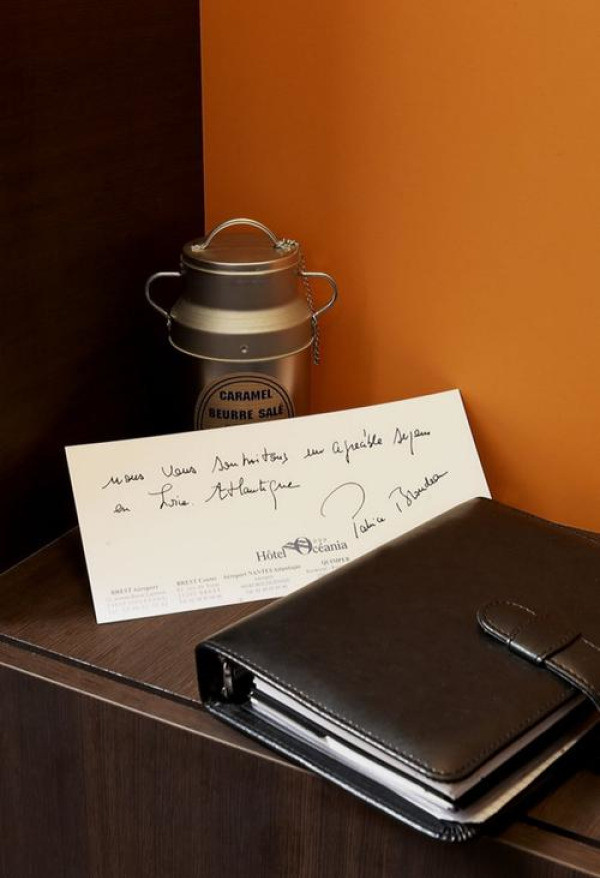 CARAMEL
BEURRE SALÉ
nous vous souhaitons un agréable séjour
en Loire. Atlantique
Patrice Blondeau
Hôtel Océania
BREST Aéroport
BREST Centre
Aéroport NANTES Atlantique
QUIMPER